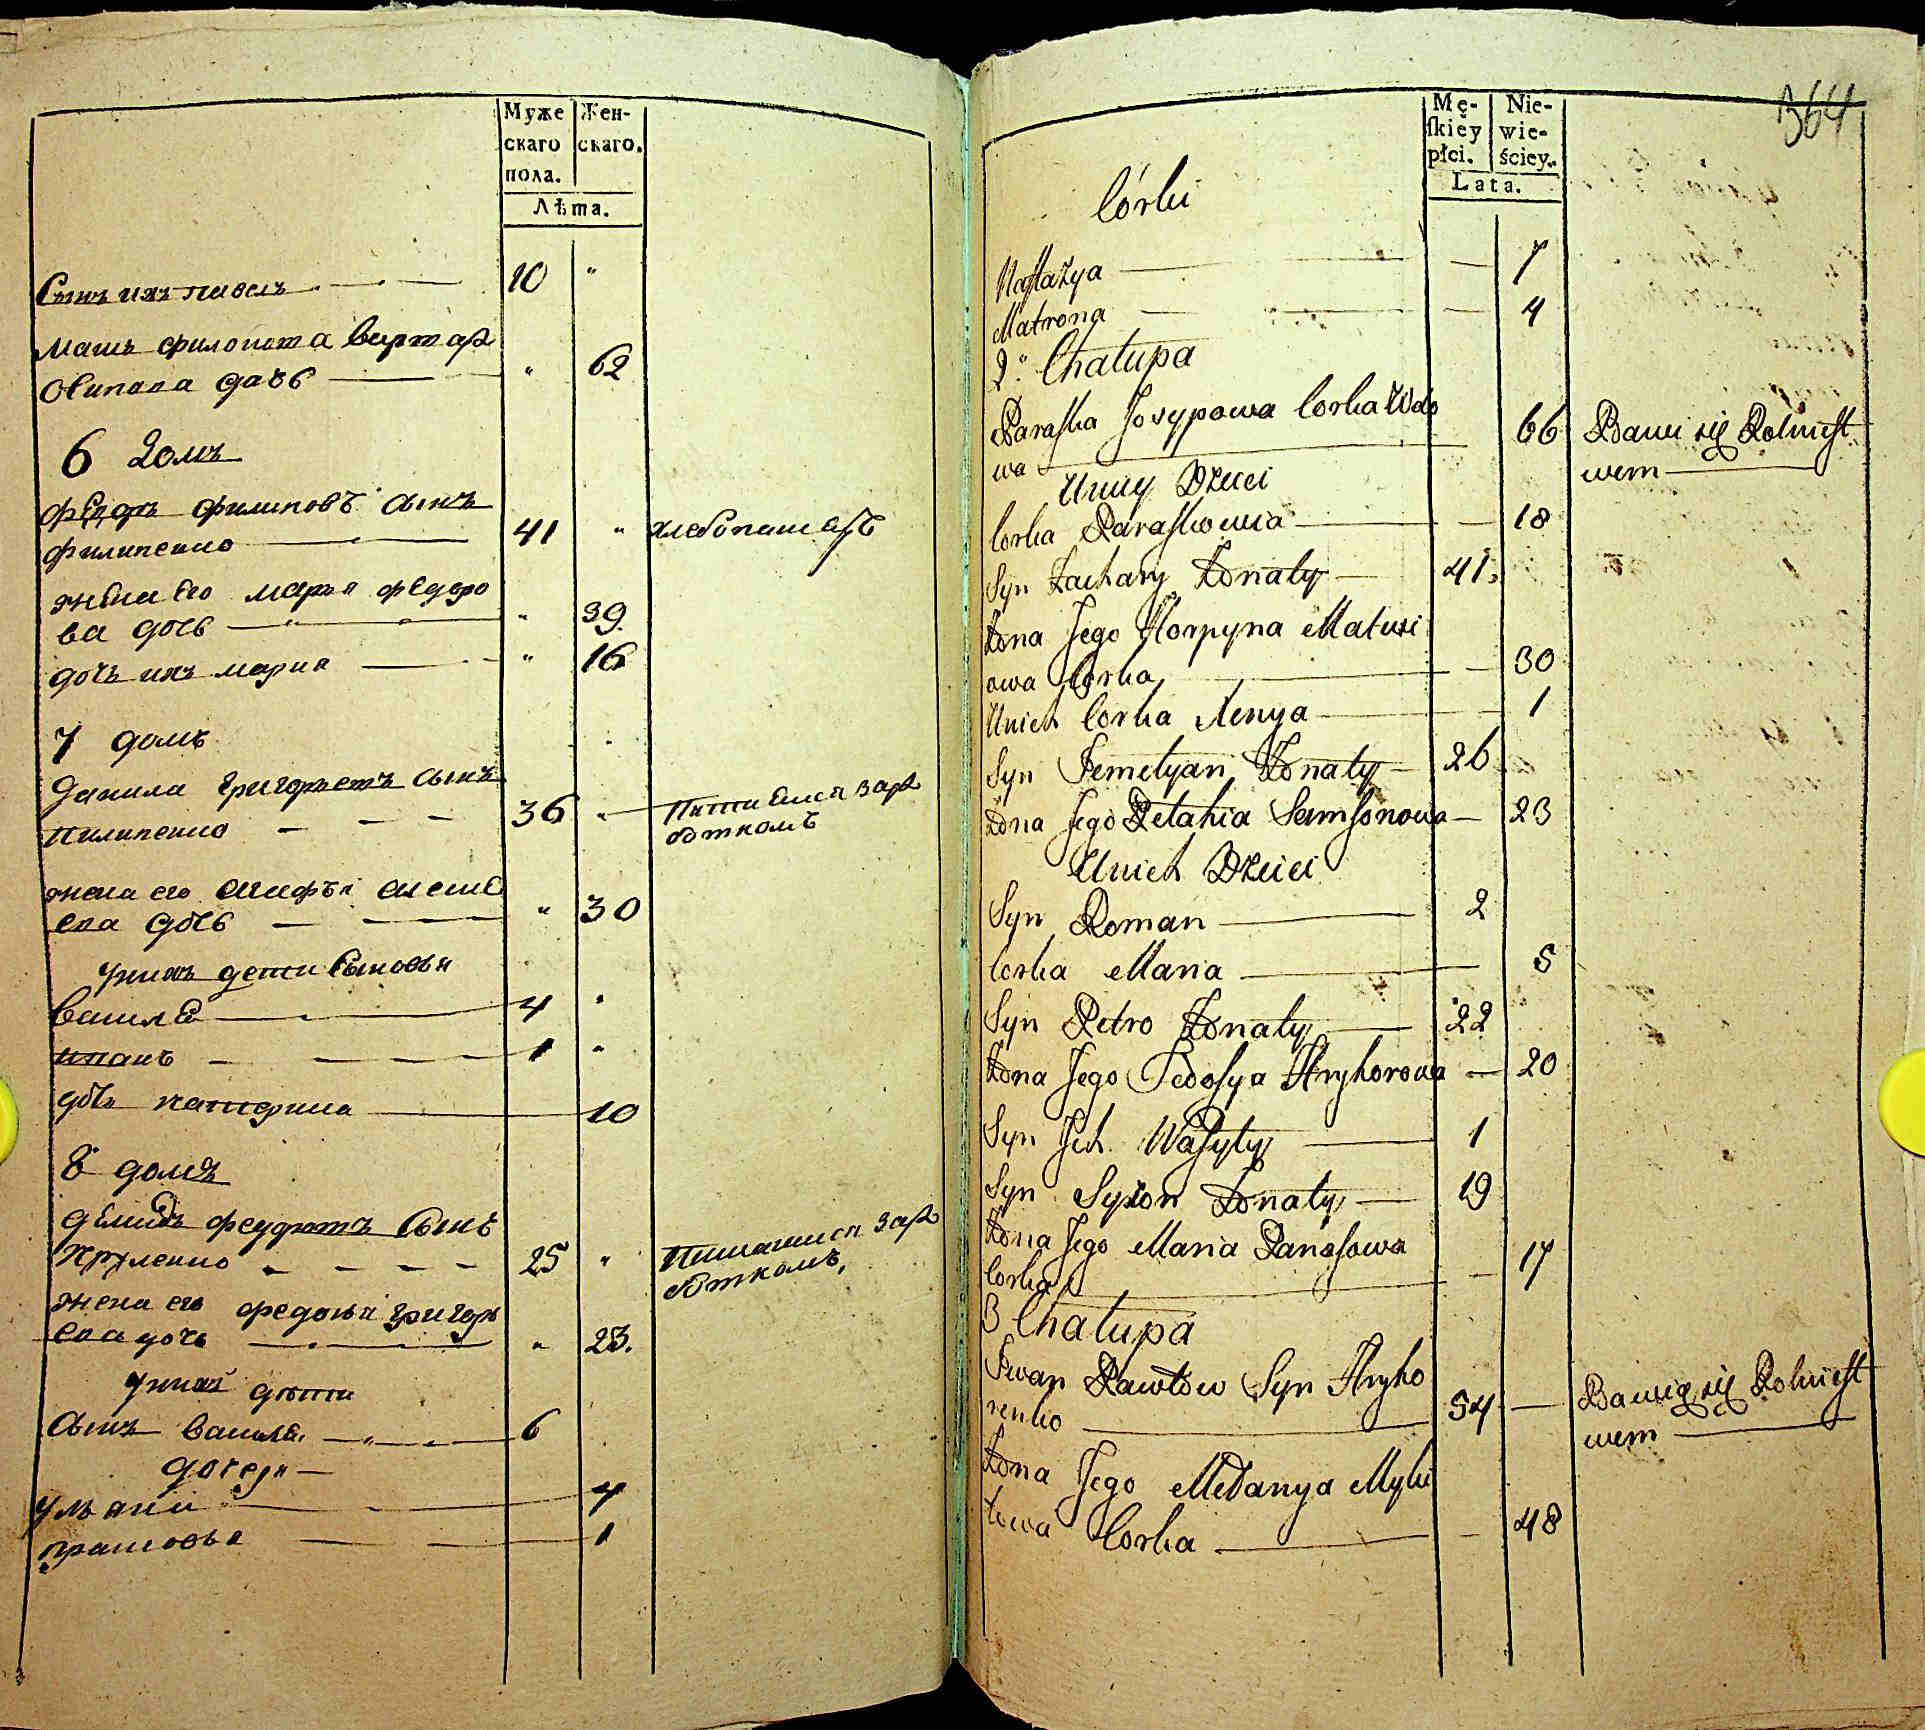 Муже
скаго
пола.
Жен-
скаго.
Лѣта.
Сынъ ихъ павелъ 10 "
мать филопота
дочь " 62
6 домъ
федоръ филиповъ сынъ
филипенко 41 " хлебопашецъ
жена его марья федоро
ва дочь " 39.
дочь ихъ мария " 16
7 домъ
данила григорьевъ сынъ
пилипенко 36 " зара
откомъ
жена его алеше
ева дочь " 30
у нихъ дети сыновья
василе 4 "
иванъ 1 "
дочь катерина 10
8 домъ
демидъ федоровъ сынъ
25 " зара
боткомъ,
жена его федосья григорь
ева дочь " 23.
у нихъ дѣти
сынъ василе. 6
дочеря
ульяна 4
прасковья 1
364
Mę-
ſkiey
płci.
Nie-
wie-
ściey.
Lata.
Córki
Nastazya — 7
Matrona — 4
2. Chałupa
Paraska Josypowa Corka Wdo
wa 66 Bawi się Rolnict
wem
U niey Dzieci
Corka Paraskowia — 18
Syn Zachary Żonaty 41.
Żona Jego Horpyna Matwi
owa Corka — 30
U nich Corka Xenya — 1
Syn Jemelyan Żonaty 26
Żona Jego Pelahia Samsonowa — 23
U nich Dzieci
Syn Roman 2
Corka Maria 5
Syn Petro Żonaty 22
Żona Jego Fedosya Hryhorowa — 20
Syn Ich Wasyly 1
Syn Żonaty 19
Żona Jego Maria Panasowa
Corka — 17
3 Chałupa
Iwan Pawłow Syn Hryho
renko 54 — Bawią się Rolnict
wem
Żona Jego Mełanya Myki
towa Corka — 48